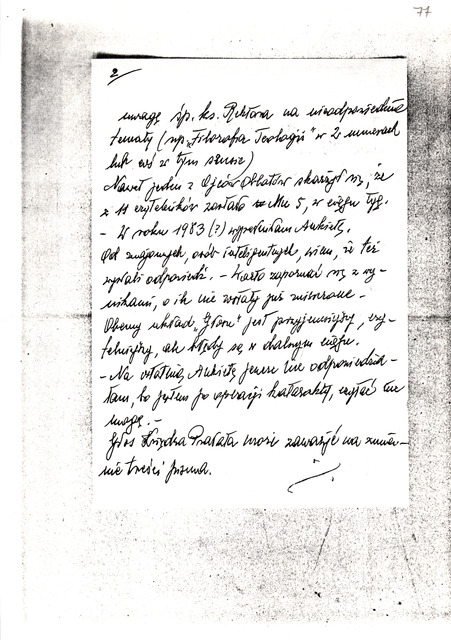 77
2
uwagę śp. ks. Rektora na nieodpowiednie
tematy (np. „Filozofia Teologii" w 2 numerach
lub coś w tym sensie)
Nawet jeden z Ojców Oblatów skarżył się, że
z 11 czytelników zostało Mu 5, w ciągu tyg.
- W roku 1983 (?) wypełniłam Ankietę.
Od znajomych, osób inteligentnych, wiem, że też
wysłali odpowiedź. - Warto zapoznać się z wy-
nikami, o ile nie zostały już zniszczone -
Obecny układ „Głosu" jest przyjemniejszy, czy-
telniejszy, ale błędy są w dalszym ciągu.
- Na ostatnią Ankietę jeszcze nie odpowiedzia-
łam, bo jestem po operacji katarakty, czytać nie
mogę. -
Głos Księdza Prałata może zaważyć na zmia-
nie treści pisma.